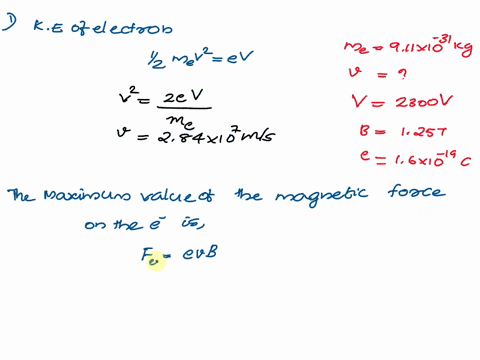 1) K.E of electron
½ mₑv² = eV
v² = 2eV / mₑ
v = 2.84×10⁷ m/s
mₑ = 9.11×10⁻³¹ kg
v = ?
V = 2300V
B = 1.25T
e = 1.6×10⁻¹⁹ C
The Maximum value of the magnetic force
on the e⁻ is,
Fₑ = evB